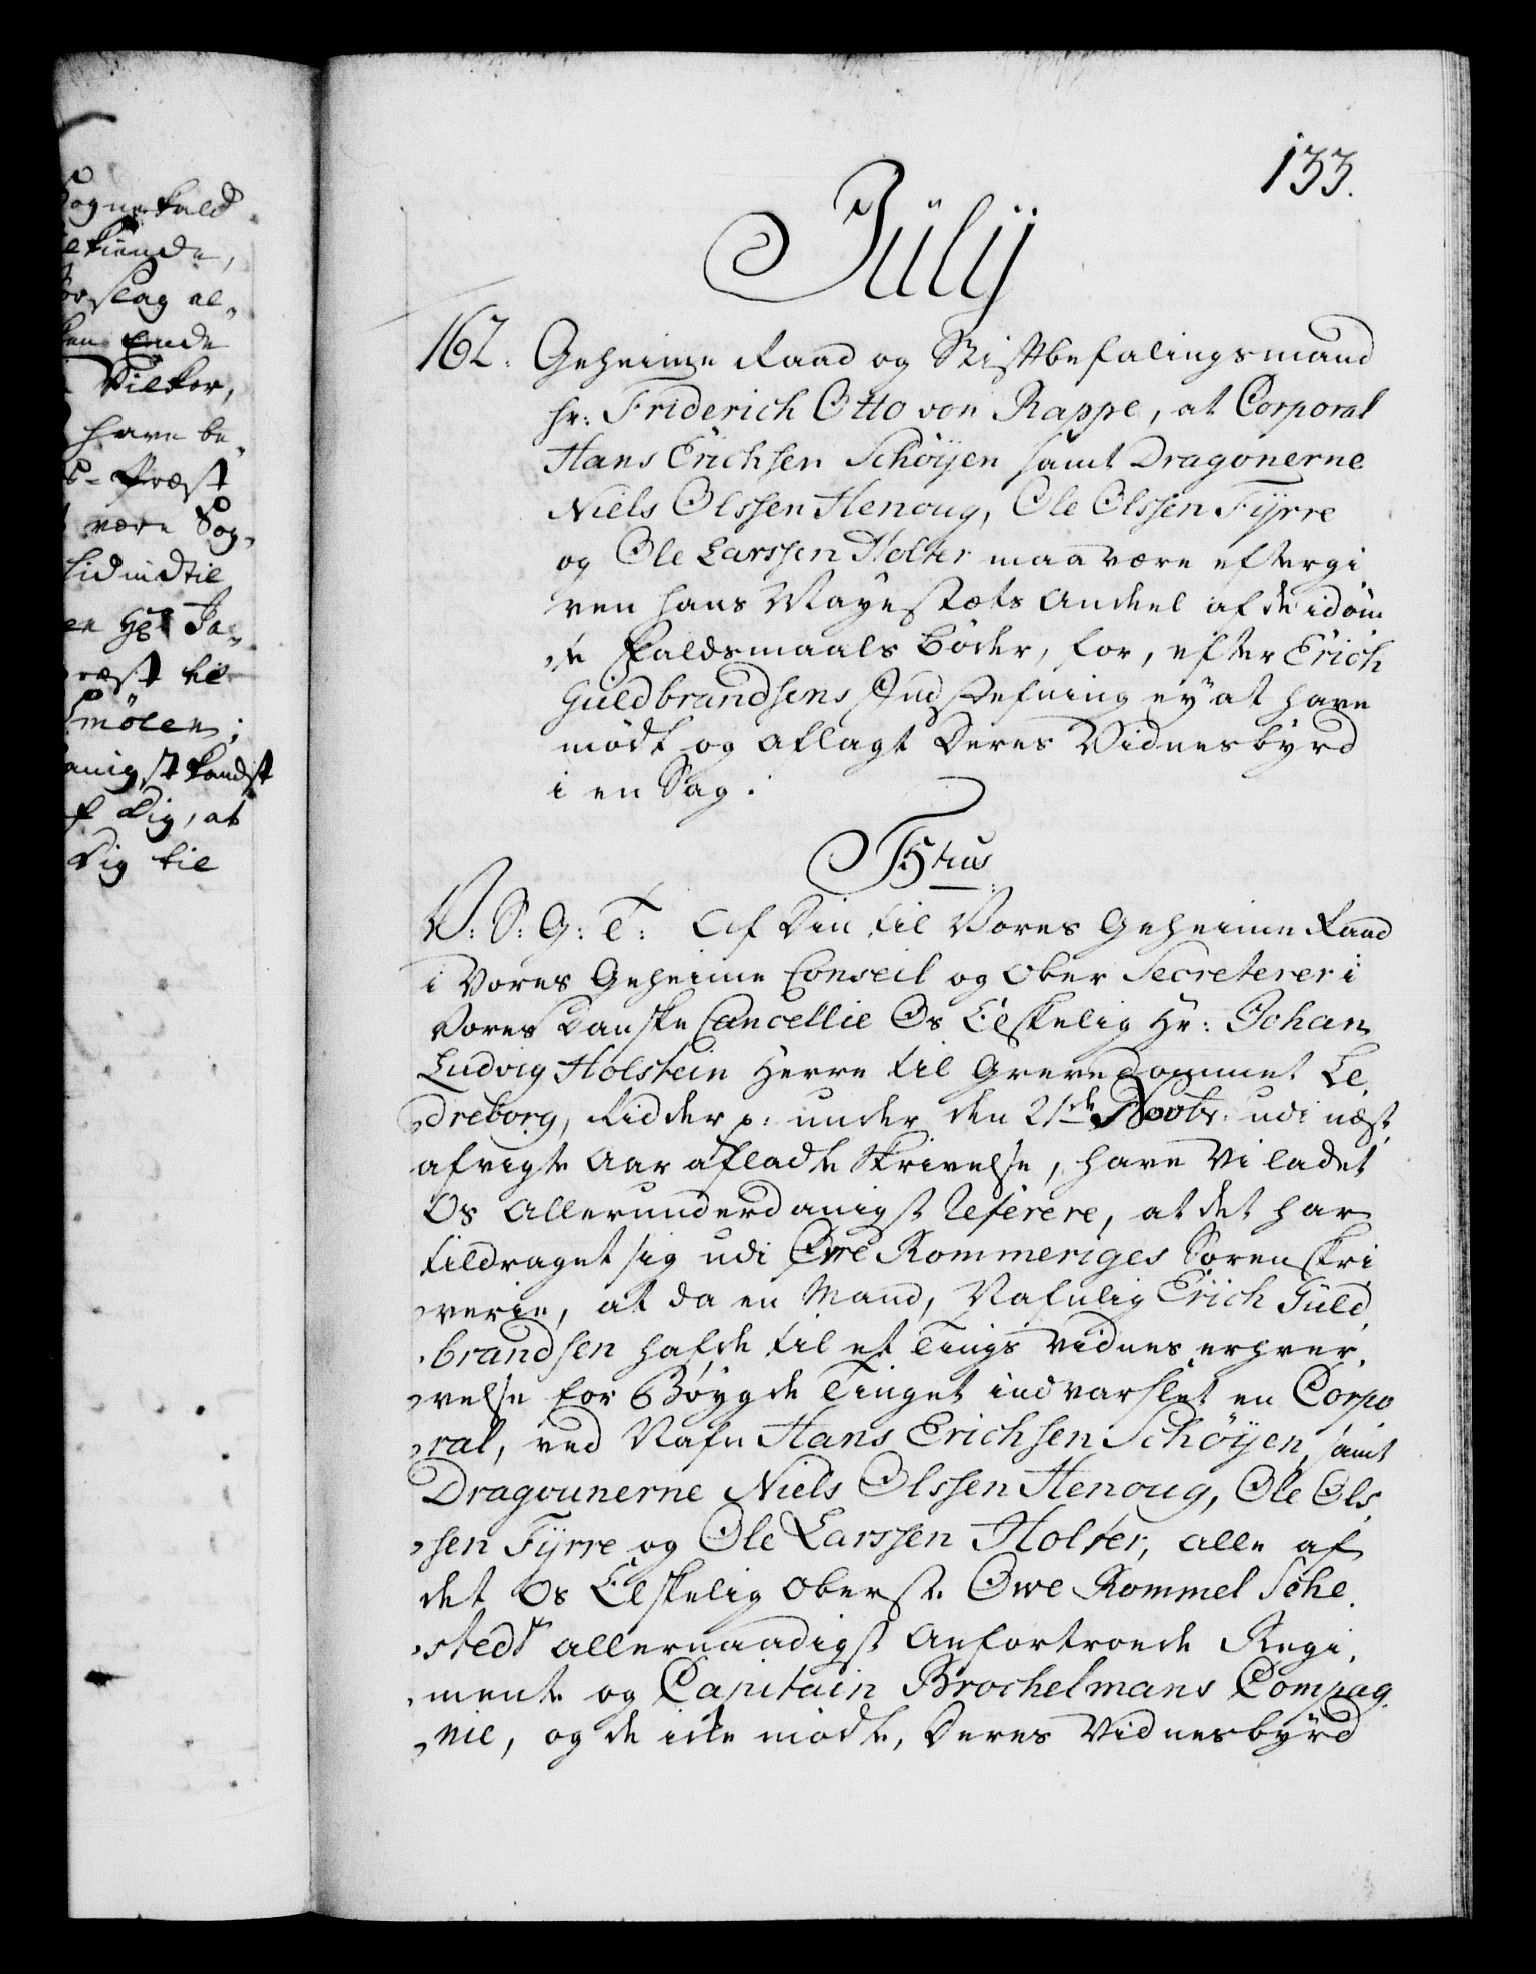 Sogne kald
kiende,
forslag al¬
Ende
Vilkor,
have be¬
Præst
være Sog¬
tid indtil
ræst til
Smölen;
Dig, at
Dig til
133.
Julÿ
162. Geheime Raad og Stiftbefalingsmand
Hr: Friderich Otto von Rappe, at Corporal
Hans Erichsen Schöÿen samt Dragonerne
Niels Olssen Henoug, Ole Olssen Fÿrre
og Ole Larssen Holter maa være eftergi
ven Hans Mayestæts Andeel af de idøm
te Faldsmaals Bøder, for, efter Erich
Guldbrandsens Indstefning eÿ at have
mödt og aflagt deres Vidnesbÿrd
i en Sag.
Fr: 5tus
V: S: G: T: Af Din til Vores Geheime Raad
i Vores Geheime Conseil og Ober Secreterer i
Vores Danske Cancellie Os Elskelig Hr: Johan
Ludvig Holstein Herre til Grevedommet Le
dreborg, Ridder p: under den 21de Novbr: udi næst
afvigte Aar afladte Skrivelse, have Vi ladet
Os Allerunderdanigst Referere, at det har
tildraget sig udi Øvre Rommeriges Sorenskri
verie, at da en Mand, Nafnlig Erich Guld
brandsen hafde til et Tings Vidnes erhver
velse for Bøygde Tinget indvarslet en Corpo
ral, ved Nafn Hans Erichsen Schöÿen, samt
Dragounerne Niels Olssen Henoug, Ole Ols
sen Fÿrre og Ole Larssen Holter, alle af
det Os Elskelig Oberst Owe Rommel Sehe
stedt allernaadigst anfortroede Regi
mente og Capitain Brochelmans Compag
nie, og de icke mödte, deres Vidnesbÿrd